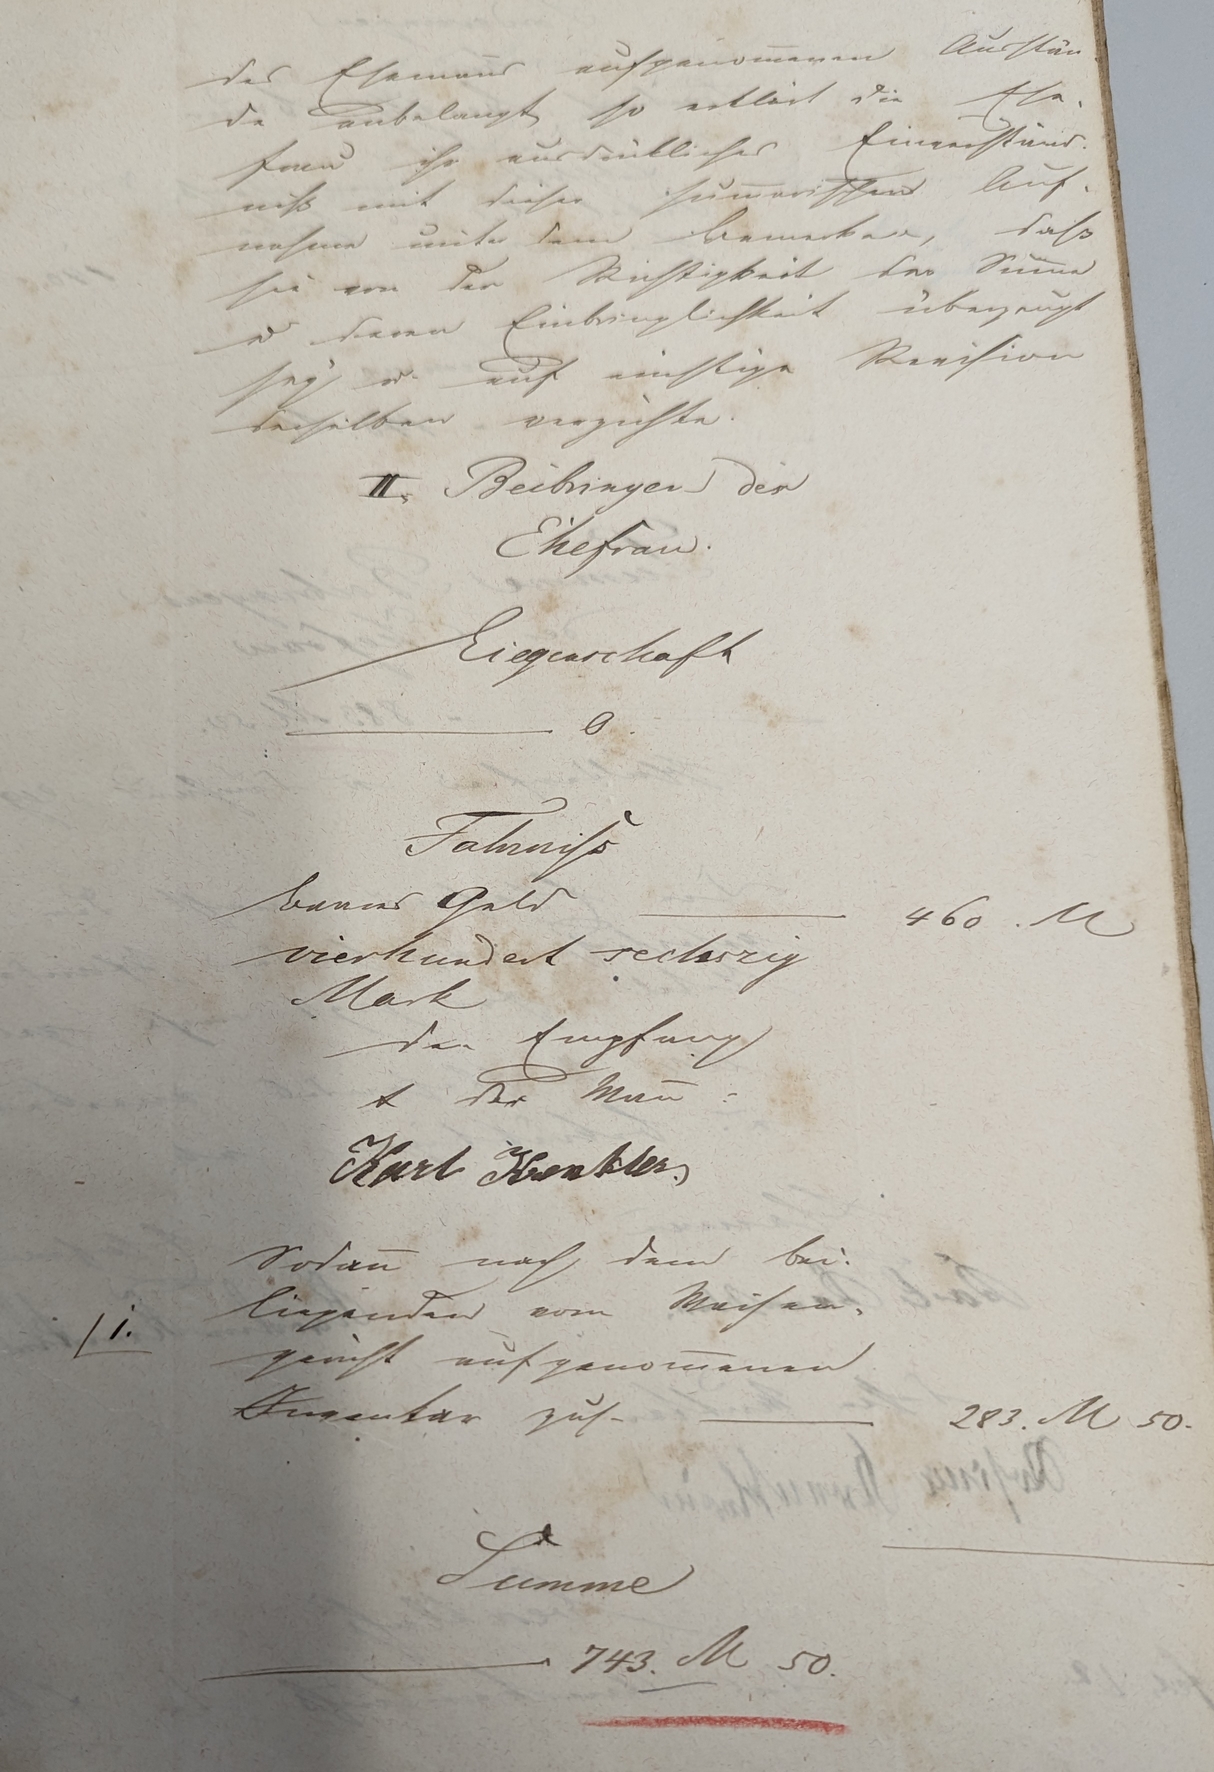 des Ehemanns aufgenom̅enen Ausstän
de anbelangt, so erklärt die Ehe-
frau ihr ausdrükliches Einverständ-
niß mit dieser sum̅arischen Auf-
nahme unter dem Bemerken, daß
sie von der Richtigkeit der Sum̅e
u. deren Einbringlichkeit überzeugt
sey u. auf einstige Revision
derselben verzichte.
II. Beibringen der
Ehefrau.
Liegenschaft
0.
Fahrniß
baares Geld 460. M
vierhundert sechszig
Mark
den Empfang
t der Man̅:
Karl
Sodan̅ nach dem bei-
liegenden vom Waisen-
gericht aufgenom̅enen
/ 1.
Inventar zus. 283. M 50.
Summe
743. M 50.